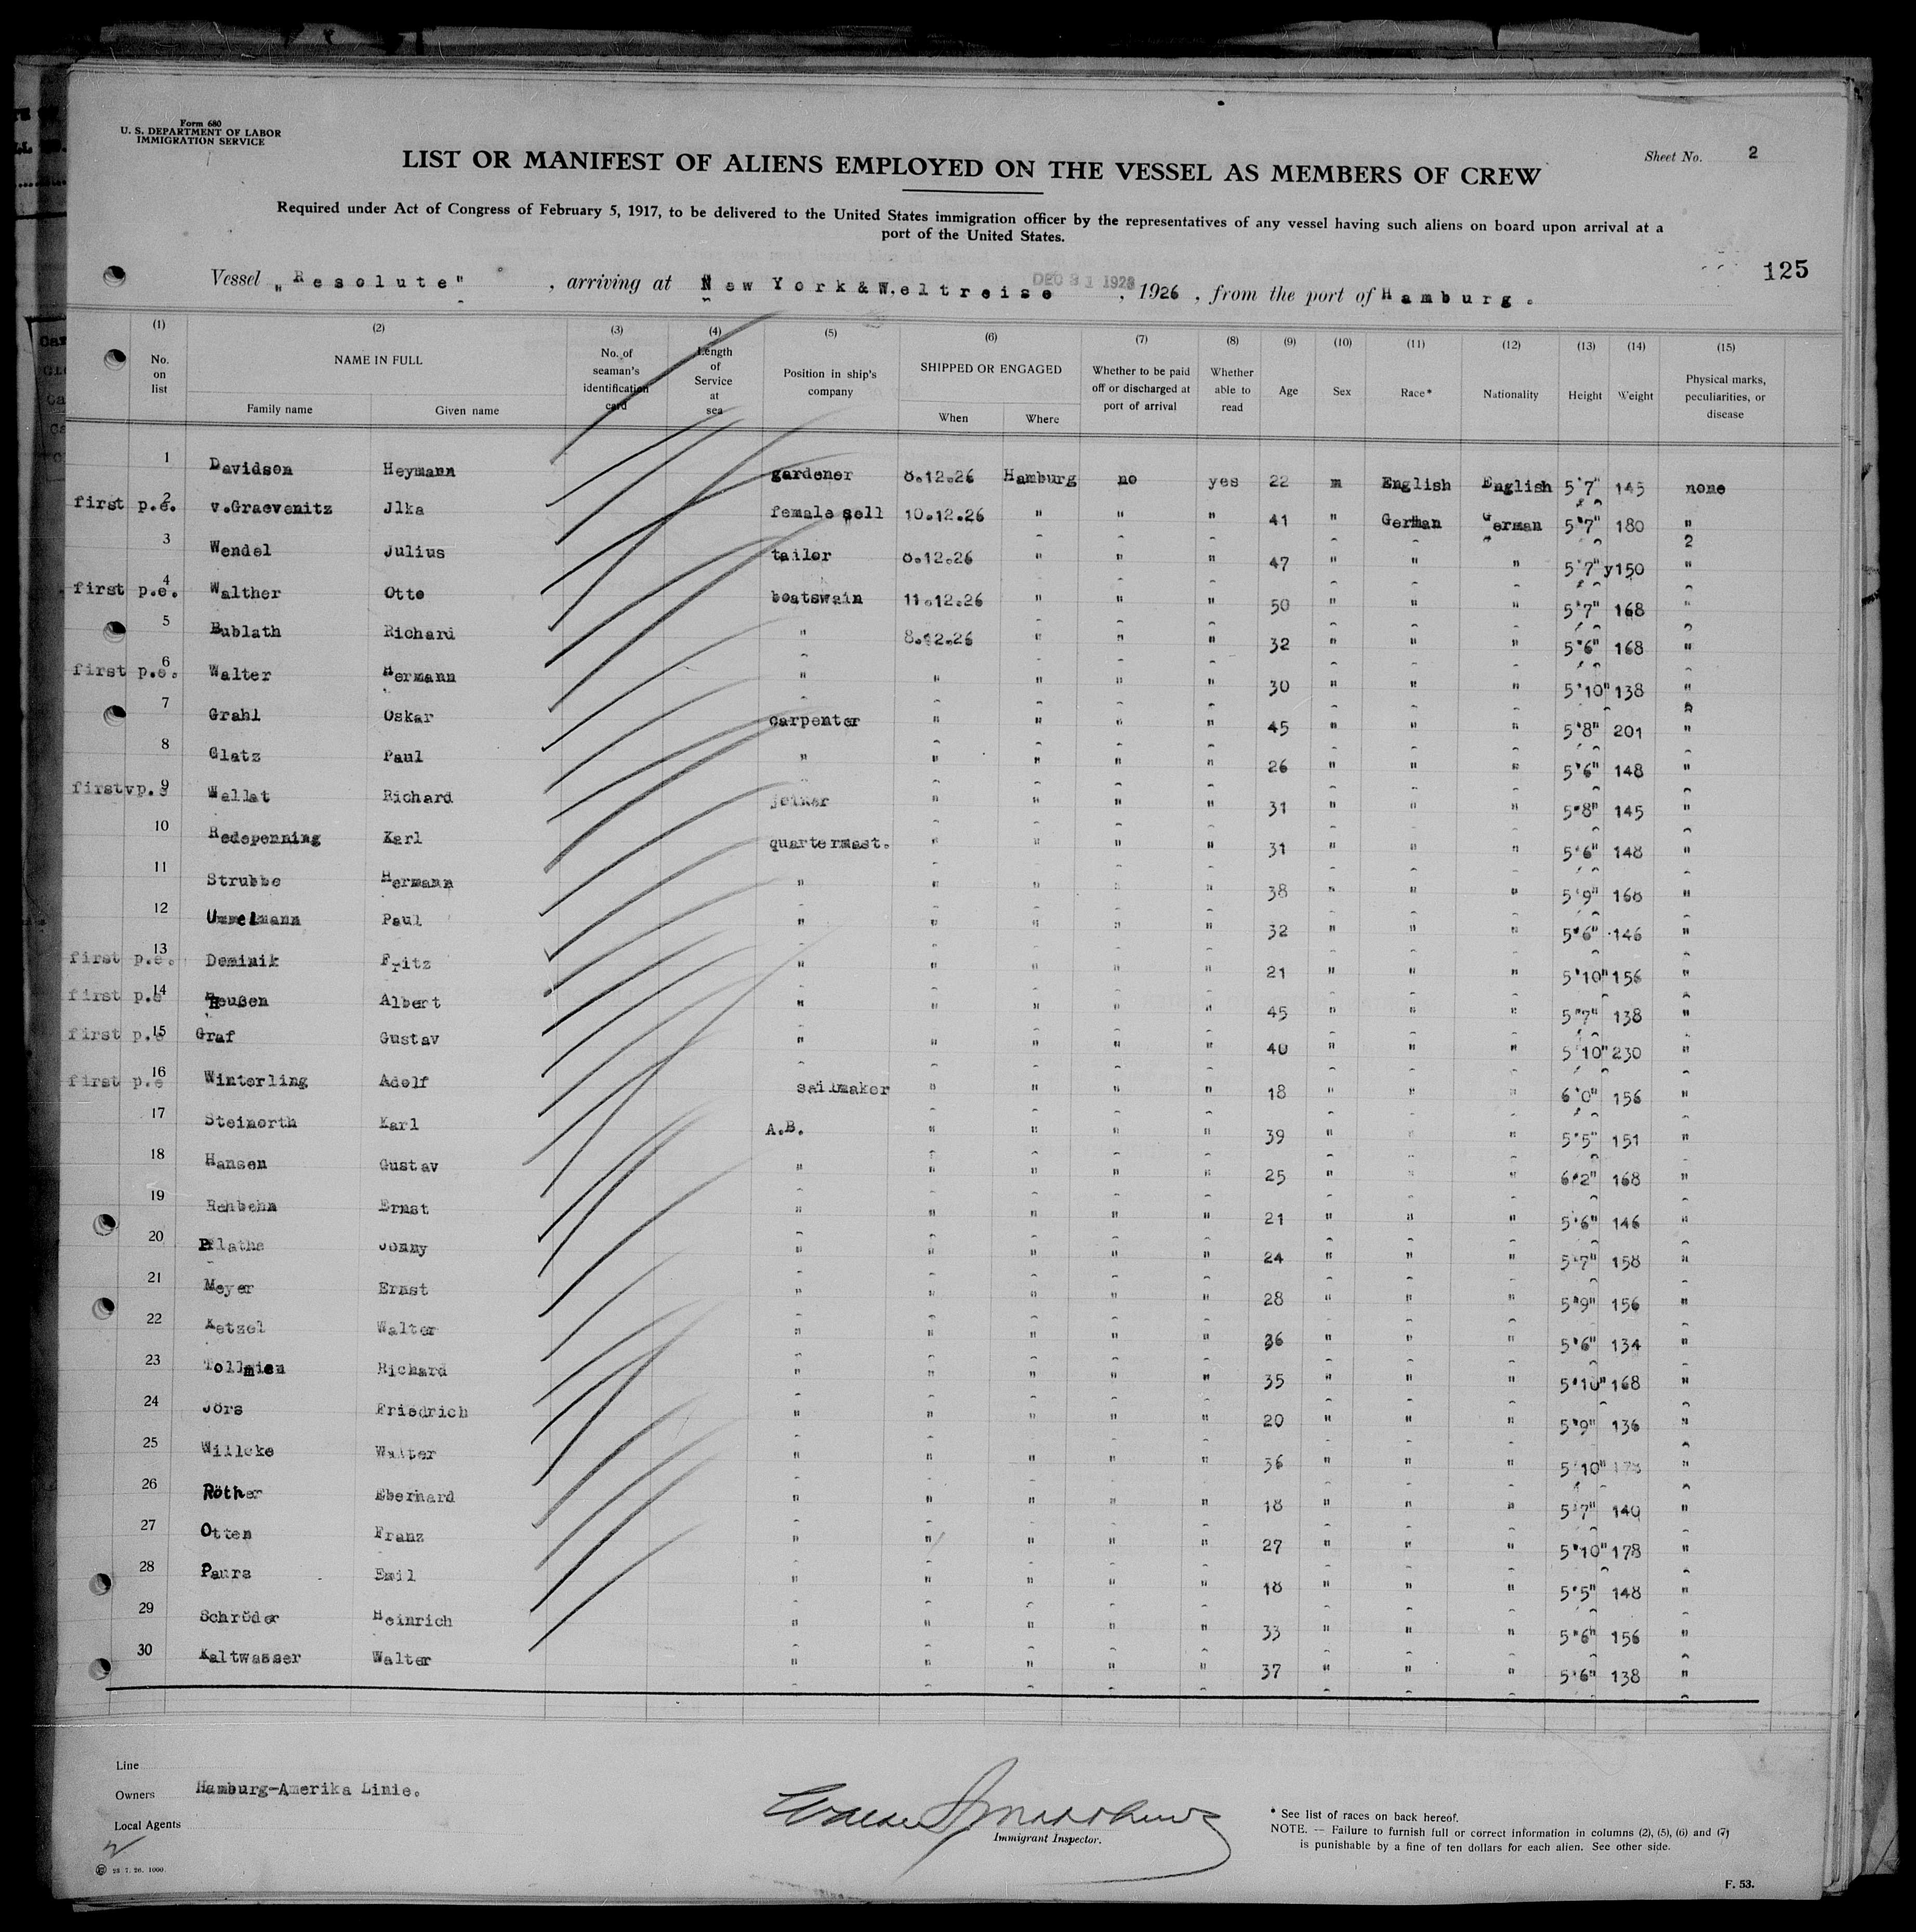 Form 680
U. S. DEPARTMENT OF LABOR
IMMIGRATION SERVICE
LIST OR MANIFEST OF ALIENS EMPLOYED ON THE VESSEL AS MEMBERS OF CREW
Sheet No. 2
Required under Act of Congress of February 5, 1917, to be delivered to the United States immigration officer by the representatives of any vessel having such aliens on board upon arrival at a
port of the United States.
125
Vessel „Resolute" , arriving at New York & Weltreise DEC 31 , 1926 , from the port of Hamburg.
(1) (2) (3) (4) (5) (6) (7) (8) (9) (10) (11) (12) (13) (14) (15)
No. on list NAME IN FULL No. of seaman's identification card Length of Service at sea Position in ship's company SHIPPED OR ENGAGED Whether to be paid off or discharged at port of arrival Whether able to read Age Sex Race* Nationality Height Weight Physical marks, peculiarities, or disease
Family name Given name When Where
1 Davidson Heymann gardener 8.12.26 Hamburg no yes 22 m English English 5'7" 145 none
first p.e. 2 v.Graevenitz Jlka female sell 10.12.26 " " " 41 " German German 5'7" 180 "
3 Wendel Julius tailor 8.12.26 " " " 47 " " " 5'7" 150 "
first p.e. 4 Walther Otto boatswain 11.12.26 " " " 50 " " " 5'7" 168 "
5 Bublath Richard " 8.12.26 " " " 32 " " " 5'6" 168 "
first p.e. 6 Walter Hermann " " " " " 30 " " " 5'10" 138 "
7 Grahl Oskar carpenter " " " " 45 " " " 5'8" 201 "
8 Glatz Paul " " " " " 26 " " " 5'6" 148 "
first p. 9 Wallat Richard joiner " " " " 31 " " " 5'8" 145 "
10 Redepenning Karl quartermast. " " " " 31 " " " 5'6" 148 "
11 Strubbe Hermann " " " " " 38 " " " 5'9" 168 "
12 Ummelmann Paul " " " " " 32 " " " 5'6" 146 "
first p.e. 13 Dominik Fritz " " " " " 21 " " " 5'10" 156 "
first p.e 14 Albert " " " " " 45 " " " 5'7" 138 "
first p.e 15 Graf Gustav " " " " " 40 " " " 5'10" 230 "
first p.e 16 Winterling Adolf sailmaker " " " " 18 " " " 6'0" 156 "
17 Steinorth Karl A.B. " " " " 39 " " " 5'5" 151 "
18 Hansen Gustav " " " " " 25 " " " 6'2" 168 "
19 Rehbehn Ernst " " " " " 21 " " " 5'6" 146 "
20 Plathe Jonny " " " " " 24 " " " 5'7" 158 "
21 Meyer Ernst " " " " " 28 " " " 5'9" 156 "
22 Ketzel Walter " " " " " 36 " " " 5'6" 134 "
23 Tollmien Richard " " " " " 35 " " " 5'10" 168 "
24 Jörs Friedrich " " " " " 20 " " " 5'9" 136 "
25 Willcke Walter " " " " " 36 " " " 5'10" "
26 Röther Eberhard " " " " " 18 " " " 5'7" 140 "
27 Otten Franz " " " " " 27 " " " 5'10" 178 "
28 Paurs Emil " " " " " 18 " " " 5'5" 148 "
29 Schröder Heinrich " " " " " 33 " " " 5'6" 156 "
30 Kaltwasser Walter " " " " " 37 " " " 5'6" 138 "
Line
Owners Hamburg-Amerika Linie.
Local Agents
Immigrant Inspector.
* See list of races on back hereof.
NOTE. — Failure to furnish full or correct information in columns (2), (5), (6) and (7)
is punishable by a fine of ten dollars for each alien. See other side.
23 7. 26. 1000.
F. 53.